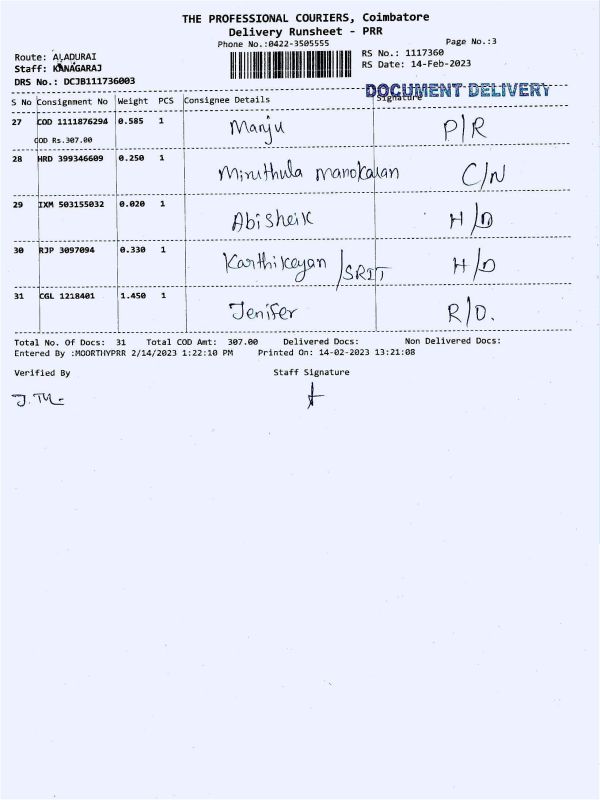 THE PROFESSIONAL COURIERS, Coimbatore
Delivery Runsheet - PRR
Phone No.:0422-3505555
Page No.:3
Route: ALADURAI
RS No.: 1117360
Staff: KANAGARAJ
RS Date: 14-Feb-2023
DRS No.: DCJB111736003
DOCUMENT DELIVERY
S No Consignment No Weight PCS Consignee Details Signature
27 COD 1111876294 0.585 1 Manju P/R
COD Rs.307.00
28 HRD 399346609 0.250 1 Miruthula manokaran C/N
29 IXM 503155032 0.020 1 Abisheik H/D
30 RJP 3097094 0.330 1 Karthikeyan /SRIT H/D
31 CGL 1218401 1.450 1 Jenifer R/D.
Total No. Of Docs: 31 Total COD Amt: 307.00 Delivered Docs: Non Delivered Docs:
Entered By :MOORTHYPRR 2/14/2023 1:22:10 PM Printed On: 14-02-2023 13:21:08
Verified By Staff Signature